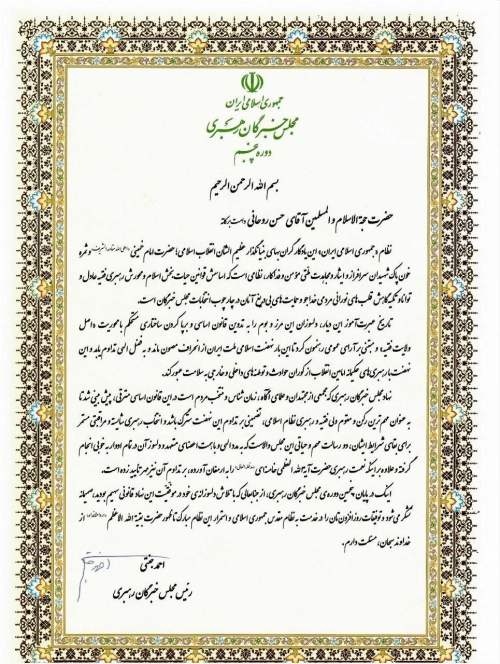 جمهوری اسلامی ایران
مجلس خبرگان رهبری
دوره پنجم
بسم الله الرحمن الرحیم
حضرت حجة الاسلام و المسلمین آقای حسن روحانی دامت برکاته
نظام «جمهوری اسلامی ایران» این یادگار گران بهای بنیانگذار عظیم الشان انقلاب اسلامی؛ حضرت امام خمینی و ثمره
خون پاک شهیدان سرافراز و ایثار و مجاهدت ملتی مؤمن و فداکار، نظامی است که اساس قوانین حیات بخش اسلام و محورش رهبری فقیه عادل و
توانا و تکیه گاهش قلب های نورانی مردمی خداجو و حمایت های بی دریغ آنان در چارچوب انتخابات مجلس خبرگان است.
تاریخ عبرت آموز این دیار، دلسوزان این مرز و بوم را به تدوین قانون اساسی و برپا کردن ساختاری مستحکم با محوریت «اصل
ولایت فقیه» و مبتنی بر آرای عمومی رهنمون کرد تا این بار نهضت اسلامی ملت ایران از انحراف مصون ماند و به فضل الهی تداوم یابد و این
نهضت با رهبری های حکیمانه امامین انقلاب از کوران حوادث و توطئه های داخلی و خارجی به سلامت عبور کند.
نهاد مجلس خبرگان رهبری که مجمعی از مجتهدان و علمای آگاه، زمان شناس و منتخب مردم است در این قانون اساسی مترقی، پیش بینی شد تا
به عنوان مهم ترین رکن و مقوم ولی فقیه و رهبری نظام اسلامی، تضمینی بر تداوم این نهضت سترگ باشد و انتخاب رهبری شایسته و مراقبتی مستمر
برای بقای شرایط ایشان، دو رسالت مهم و حیاتی این مجلس والاست که به مدد الهی و با همت اعضای متعهد و دلسوز آن در تمام ادوار به خوبی انجام
گرفته و علاوه بر اینکه نعمت رهبری حضرت آیة الله العظمی خامنه ای را به ارمغان آورده، بر تداوم آن نیز مهر تایید زده است.
اینک در پایان پنجمین دوره ی مجلس خبرگان رهبری، از جنابعالی که با تلاش و دلسوزانه ی خود در موفقیت این نهاد قانونی سهیم بودید، صمیمانه
تشکر می شود و توفیقات روز افزونتان را در خدمت به نظام مقدس جمهوری اسلامی و استمرار این نظام مبارک تا ظهور حضرت بقیة الله الاعظم از
خداوند سبحان، مسئلت دارم.
احمد جنتی
رئیس مجلس خبرگان رهبری